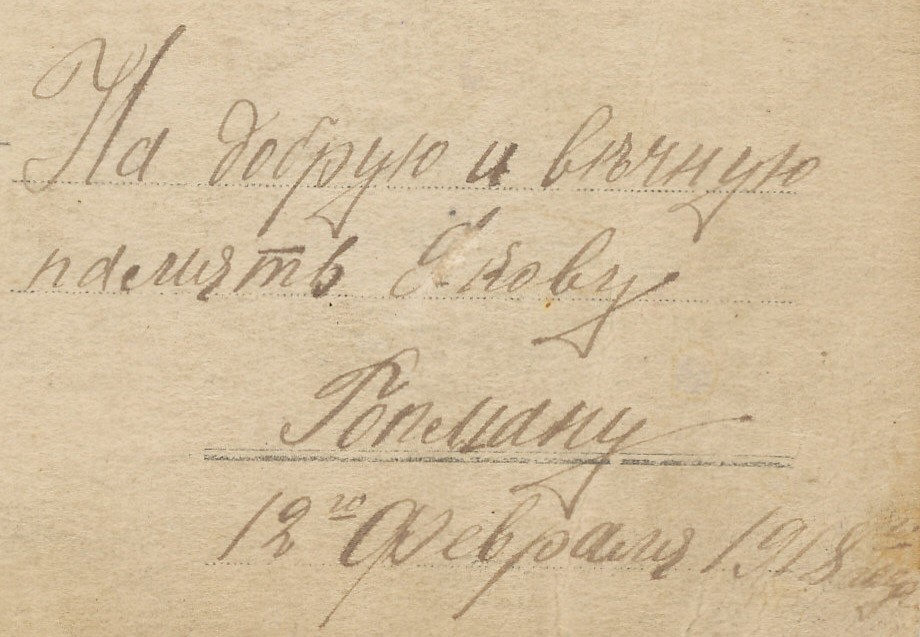 На добрую и вѣчную
память Якову
Гопману
12го Февраля 1918